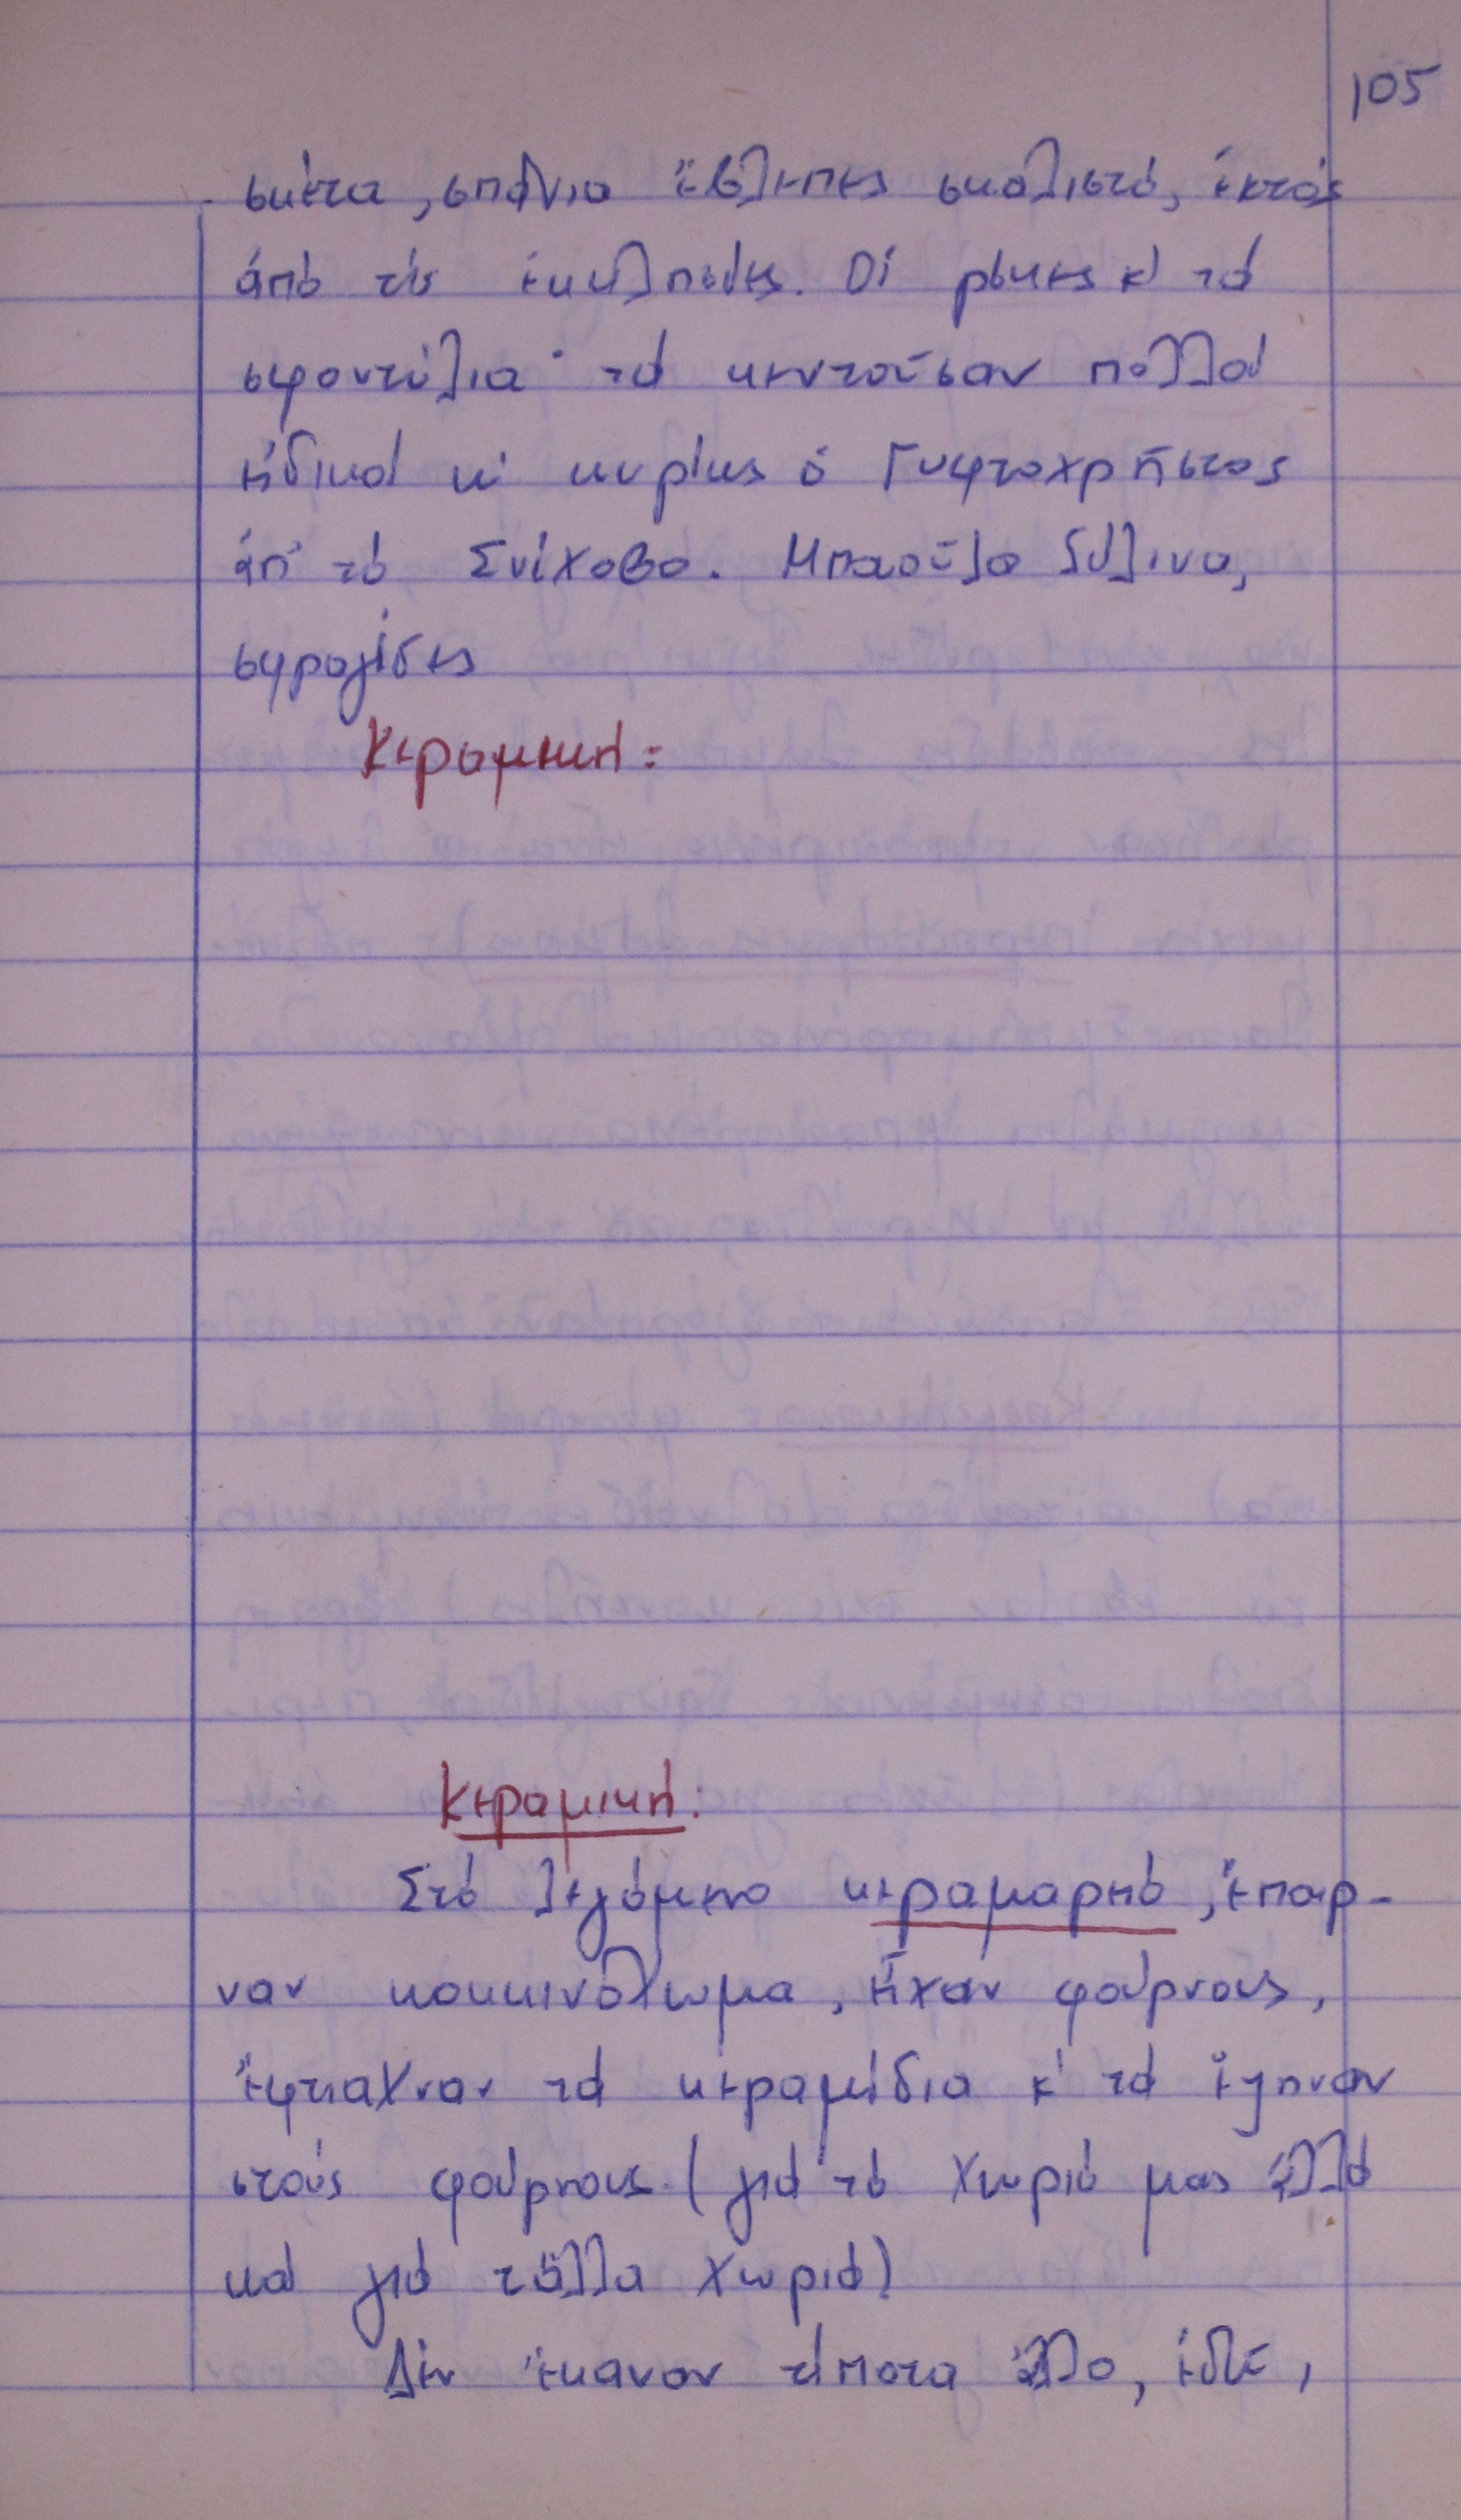 105
σκέτα, σπάνια ἔβλεπες σκαλιστό, ἐκτός
ἀπό τίς ἐκκλησιές. Οἱ ρόκες κ' τά
σφοντύλια· τά κεντοῦσαν πολλοί
εἰδικοί κι' κυρίως ὁ Γυφτοχρῆστος
ἀπ' τό Σνίχοβο. Μπαοῦλα ξύλινα,
σφραγίδες
Κεραμεική:
Κεραμική:
Στό λεγόμενο κεραμαρειό, ἔπαιρ-
ναν κοκκινόχωμα, εἴχαν φούρνους,
ἔφτιαχναν τά κεραμίδια κ' τά ἔψηναν
στούς φούρνους. (γιά τό χωριό μας ἀλλά
καί γιά τἄλλα χωριά)
Δέν ἔκαναν τίποτα ἄλλο, ἐδῶ,